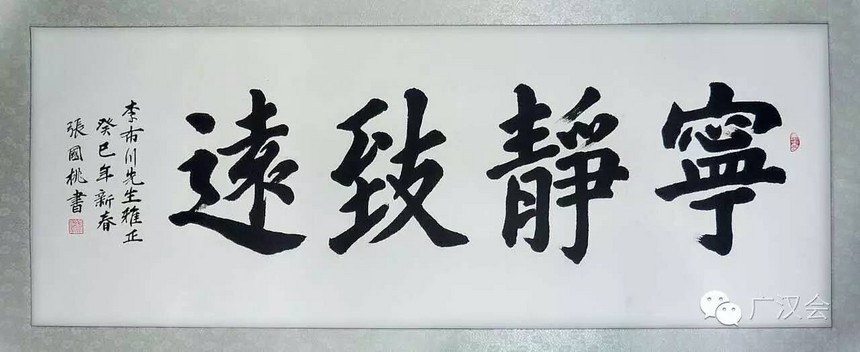 寧靜致遠
李布川先生雅正
癸巳年新春
張國桃書
广汉会